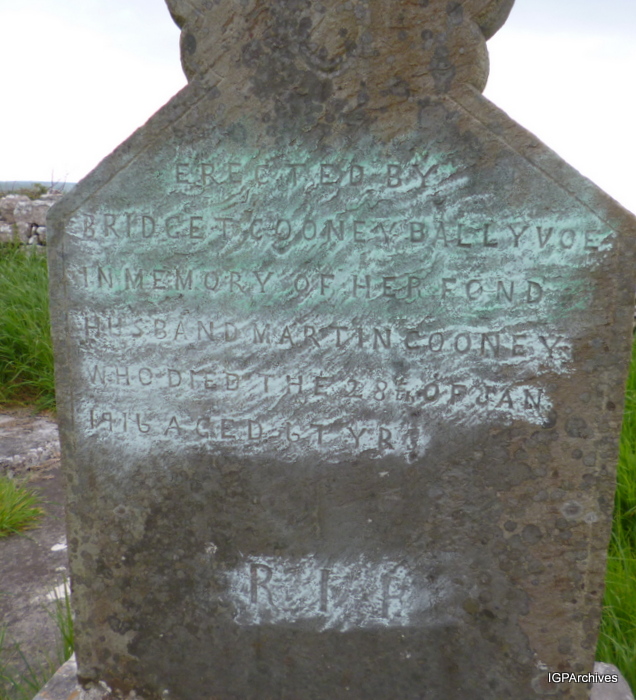 ERECTED BY
BRIDGET COONEY BALLYVOE
IN MEMORY OF HER FOND
HUSBAND MARTIN COONEY
WHO DIED THE 28th OF JAN
1916 AGED YRS
R I P
IGPArchives